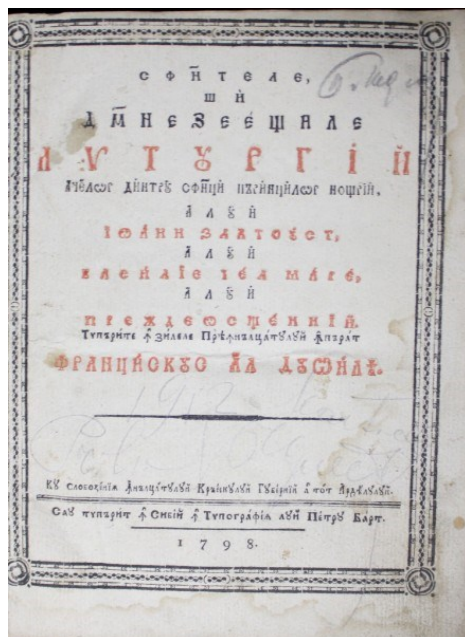 Сфи҃теле,
ши́
Дм҃незее́щиле
Лѵтꙋргі́и
А҆че́лѡр ди́нтрꙋ сфи́нци пъри́нцилѡр ношри́,
А҆лꙋи́
Іѡа́нн Златоꙋст,
А҆лꙋи́
Васи́ліе чел Ма́ре,
А҆лꙋи́
Преждеѡсще́нніи.
Тѵпъри́те ꙟ҆ зи́леле Прѣꙟ҆нълца́тꙋлꙋй ꙟ҆пърат
Франци́скꙋс ал дѡйлѣ.
Кꙋ слобози́нїѧ ꙟ҆нълца́тꙋлꙋй Кръе́скꙋлꙋй Гꙋбе́рнїй а то́т Арде́лꙋлꙋй.
Сау тѵпъри́т ꙟ҆ Сиби́й ꙟ҆ Тѵпогра́фїа лꙋй Пе́трꙋ Барт.
1798.